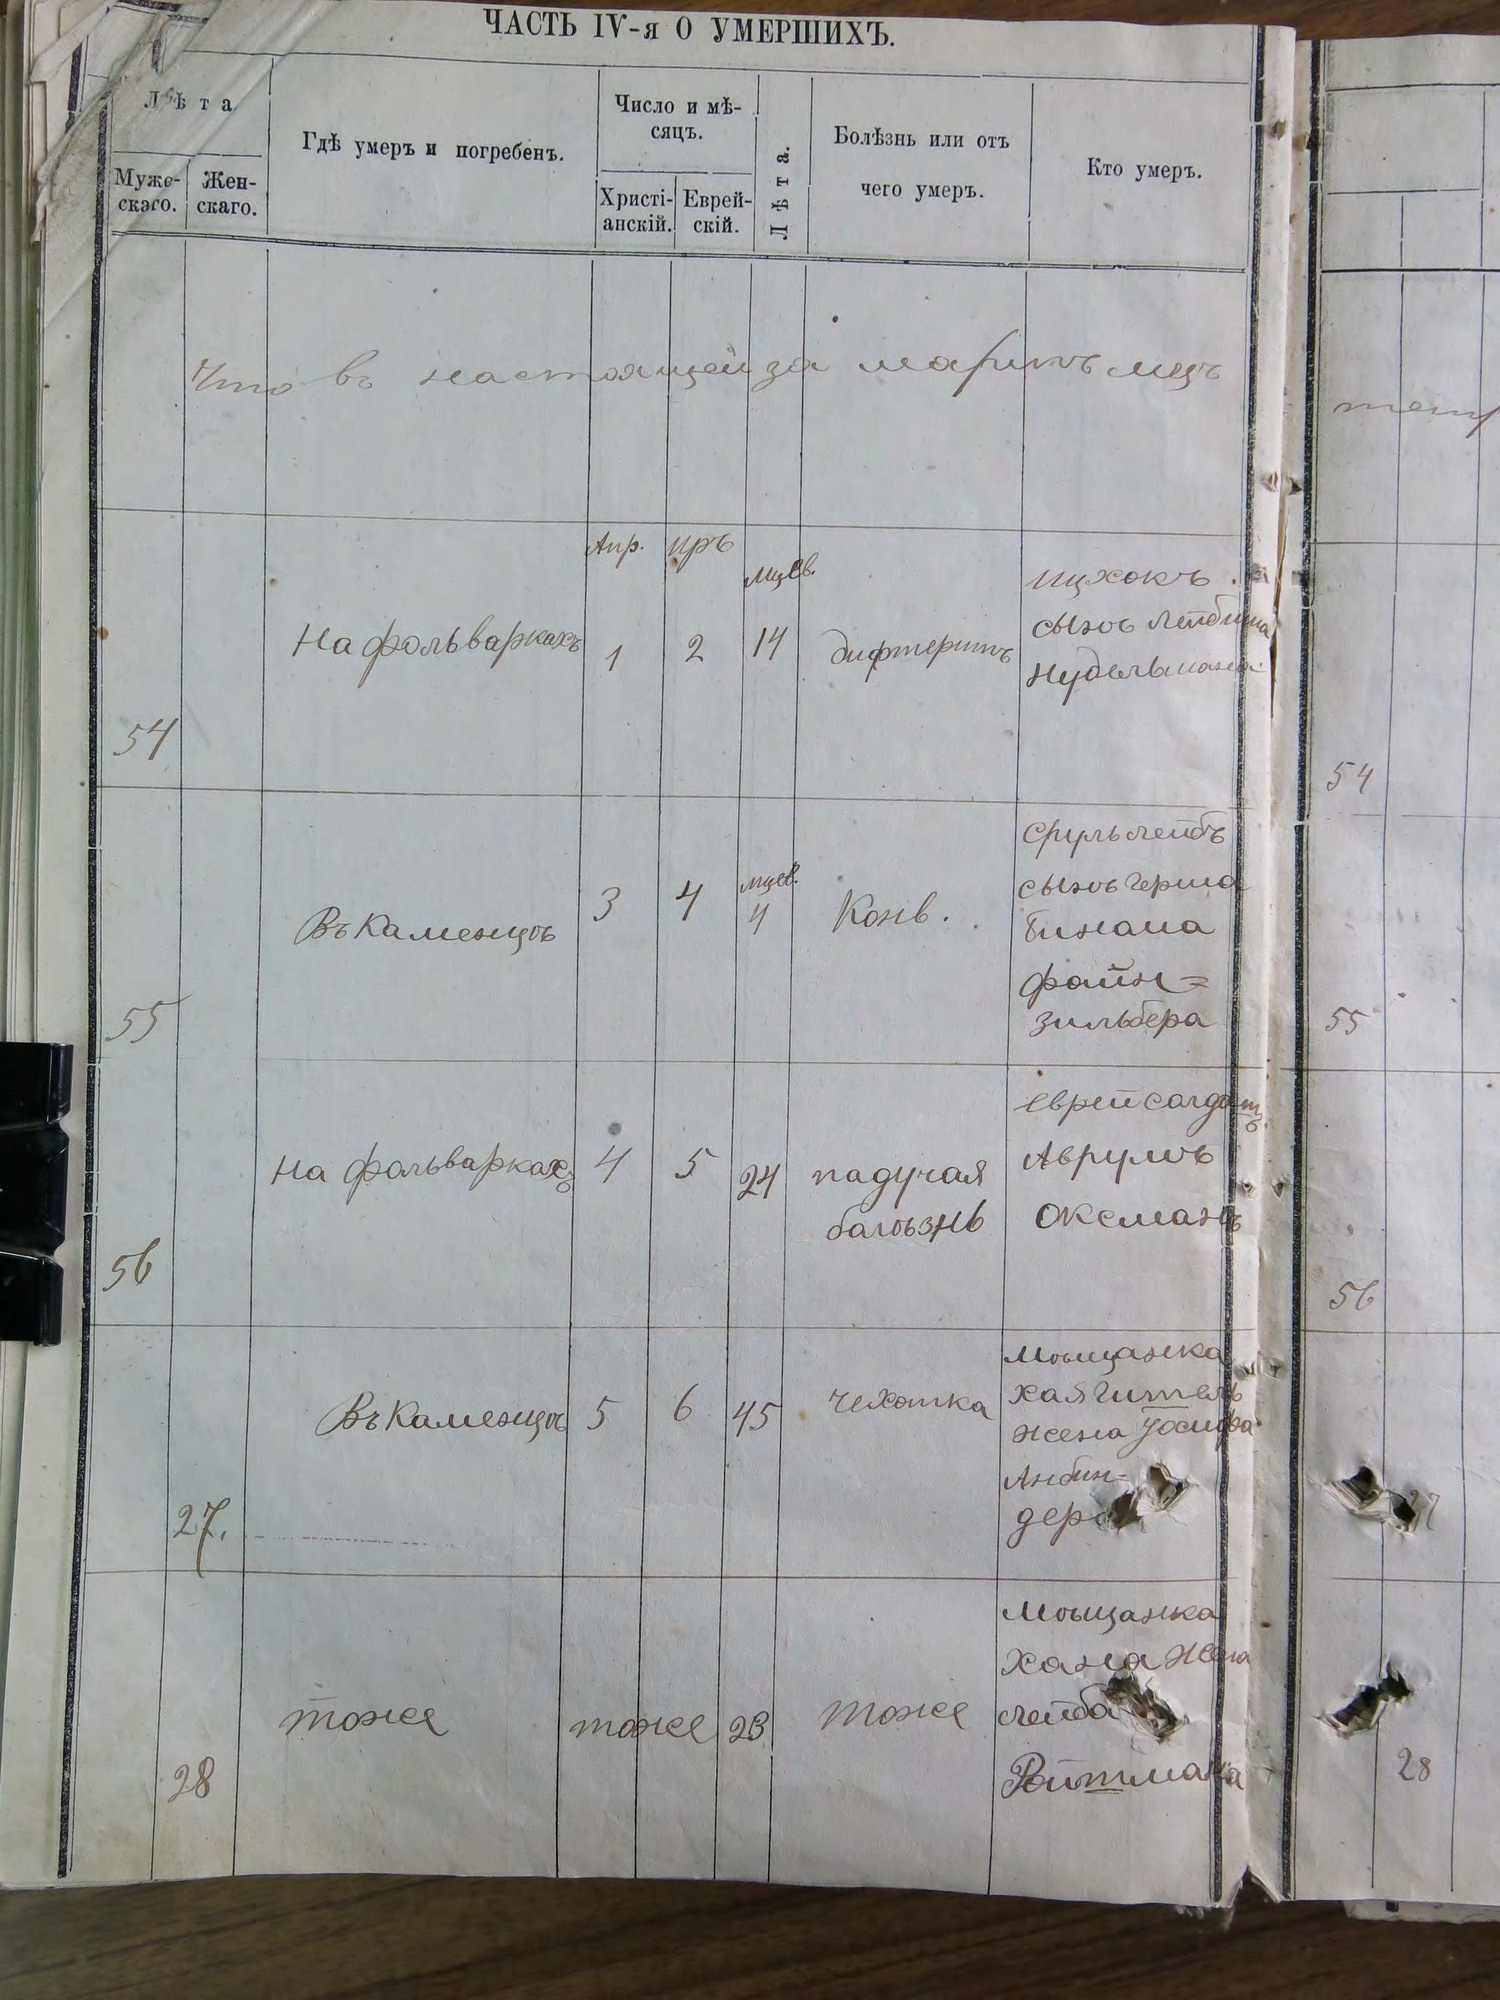 ЧАСТЬ IV-я О УМЕРШИХЪ.
Лѣта
Муже-
скаго.
Жен-
скаго.
Гдѣ умеръ и погребенъ.
Число и мѣ-
сяцъ.
Христі-
анскій.
Еврей-
скій.
Лѣта.
Болѣзнь или отъ
чего умеръ.
Кто умеръ.
Что въ настоящей за мартъ мцъ
Апр. иръ
мцев.
54
На фольваркахъ
1
2
14
дифтеритъ
Ицхокъ
сынъ Лейбиша
Нудельмана
54
55
Въ Каменцѣ
3
4
мцев.
4
Конв.
Сруль Лейбъ
сынъ Герша
Бинама
Файн=
зильбера
55
56
На фольваркахъ
4
5
24
падучая
балѣзнь
Еврей салдатъ
Аврумъ
Оксманъ
56
27.
Въ Каменцѣ
5
6
45
Чехотка
Мѣщанка
Хая Гитель
жена Іосифа
Анбин-
дера
27
28
тоже
тоже
23
тоже
Мѣщанка
Хана жена
Лейба
Ройтмана
28